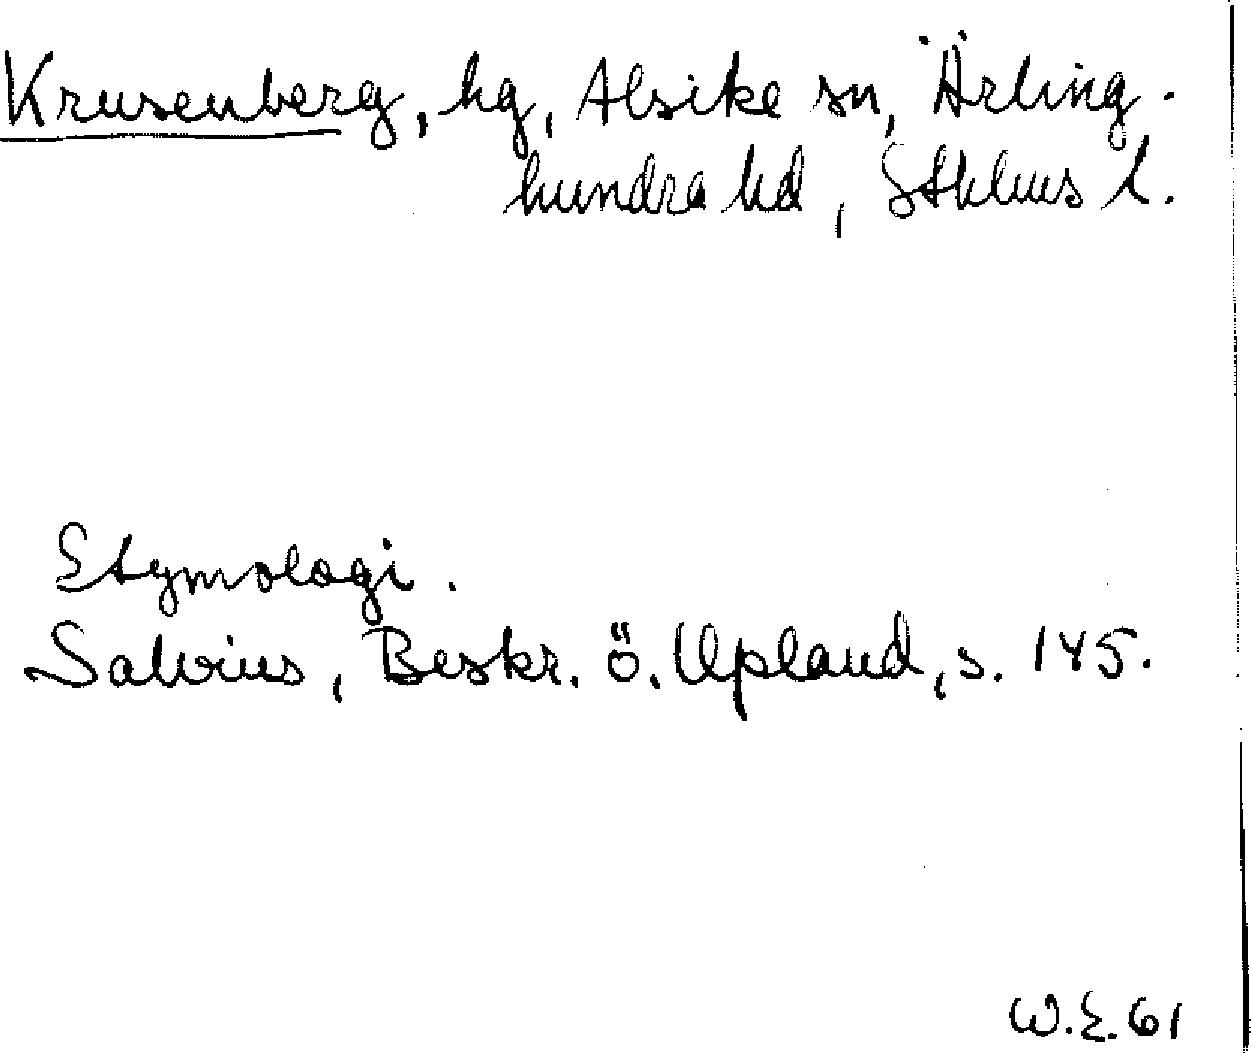 Krusenberg, hg, Alsike sn, Ärling-
hundra hd, Sthlms l.
Etymologi.
Salvius, Beskr. ö. Upland, s. 145.
W.E. 61